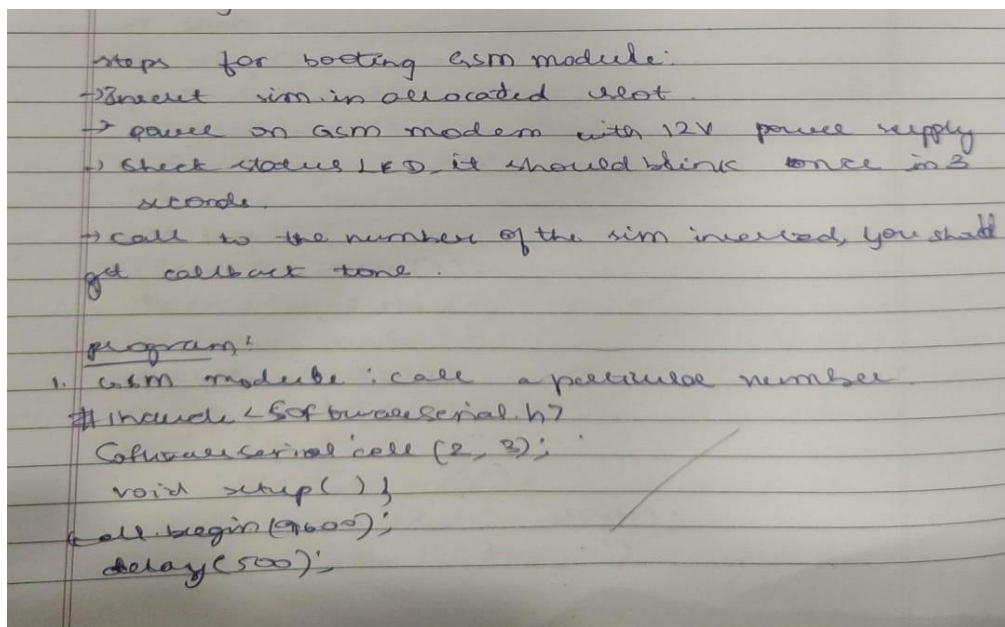 steps for booting GSM module:
→ Insert sim in allocated slot.
→ power on GSM modem with 12V power supply
→ check status LED, it should blink once in 3
seconds.
→ call to the number of the sim inserted, you shall
get callback tone.
program:
1. GSM module : call a particular number
#include <SoftwareSerial.h>
SoftwareSerial cell (2, 3);
void setup() {
cell.begin(9600);
delay(500);